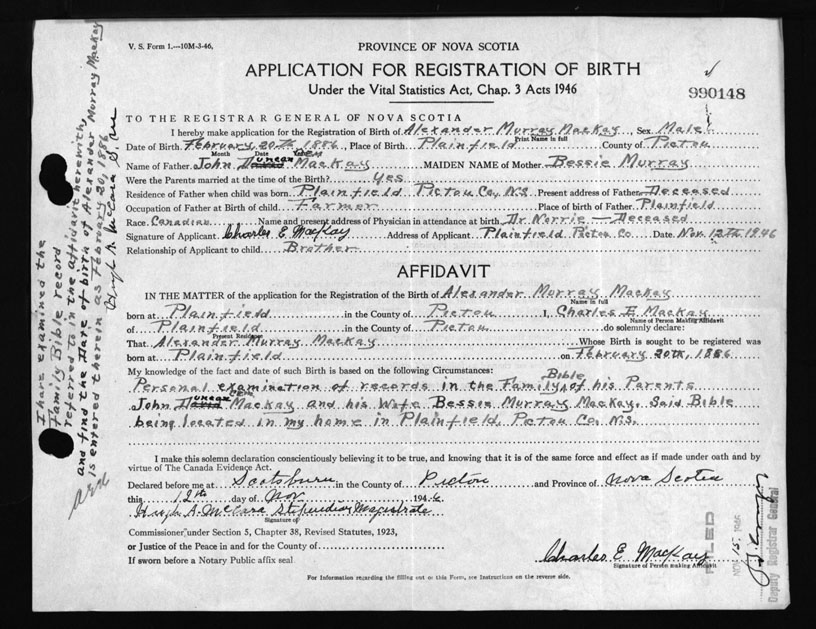 V. S. Form 1.—10M-3-46.
PROVINCE OF NOVA SCOTIA
APPLICATION FOR REGISTRATION OF BIRTH
Under the Vital Statistics Act, Chap. 3 Acts 1946
990148
TO THE REGISTRAR GENERAL OF NOVA SCOTIA
I hereby make application for the Registration of Birth of Alexander Murray MacKay, Sex Male
Print Name in full
Date of Birth February 20th 1886, Place of Birth Plainfield County of Pictou
Month Date Year
Name of Father John Duncan MacKay MAIDEN NAME of Mother Bessie Murray
Were the Parents married at the time of the Birth? Yes
Residence of Father when child was born Plainfield Pictou Co, N.S. Present address of Father Deceased
Occupation of Father at Birth of Child Farmer Place of birth of Father Plainfield
Race Canadian Name and present address of Physician in attendance at birth Dr Norrie — Deceased
Signature of Applicant Charles E MacKay Address of Applicant Plainfield Pictou Co Date Nov. 12th 1946
Relationship of Applicant to child Brother
AFFIDAVIT
IN THE MATTER of the application for the Registration of the Birth of Alexander Murray MacKay
Name in full
born at Plainfield in the County of Pictou I, Charles E MacKay
Name of Person Making Affidavit
of Plainfield in the County of Pictou do solemnly declare:
Present Residence
That Alexander Murray MacKay Whose Birth is sought to be registered was
born at Plainfield on February 20th, 1886
My knowledge of the fact and date of such Birth is based on the following Circumstances:
Personal examination of records in the Family Bible of his Parents
John Duncan MacKay and his Wife Bessie Murray MacKay. Said Bible
being located in my home in Plainfield, Pictou Co. N.S.
I make this solemn declaration conscientiously believing it to be true, and knowing that it is of the same force and effect as if made under oath and by
virtue of The Canada Evidence Act.
Declared before me at Scotsburn in the County of Pictou and Province of Nova Scotia
this 12th day of Nov 1946
Hugh A. McCara Stipendiary Magistrate
Signature of
Commissioner under Section 5, Chapter 38, Revised Statutes, 1923,
or Justice of the Peace in and for the County of
If sworn before a Notary Public affix seal
Charles E. MacKay
Signature of Person making Affidavit
For Information regarding the filling out of this Form, see Instructions on the reverse side.
FILED
NOV 15 1946
Deputy Registrar General
I have examined the
Family Bible record
referred to in the affidavit herewith,
and find the Date of birth of Alexander Murray MacKay
is entered therein as February 20, 1886
Hugh A. McCara